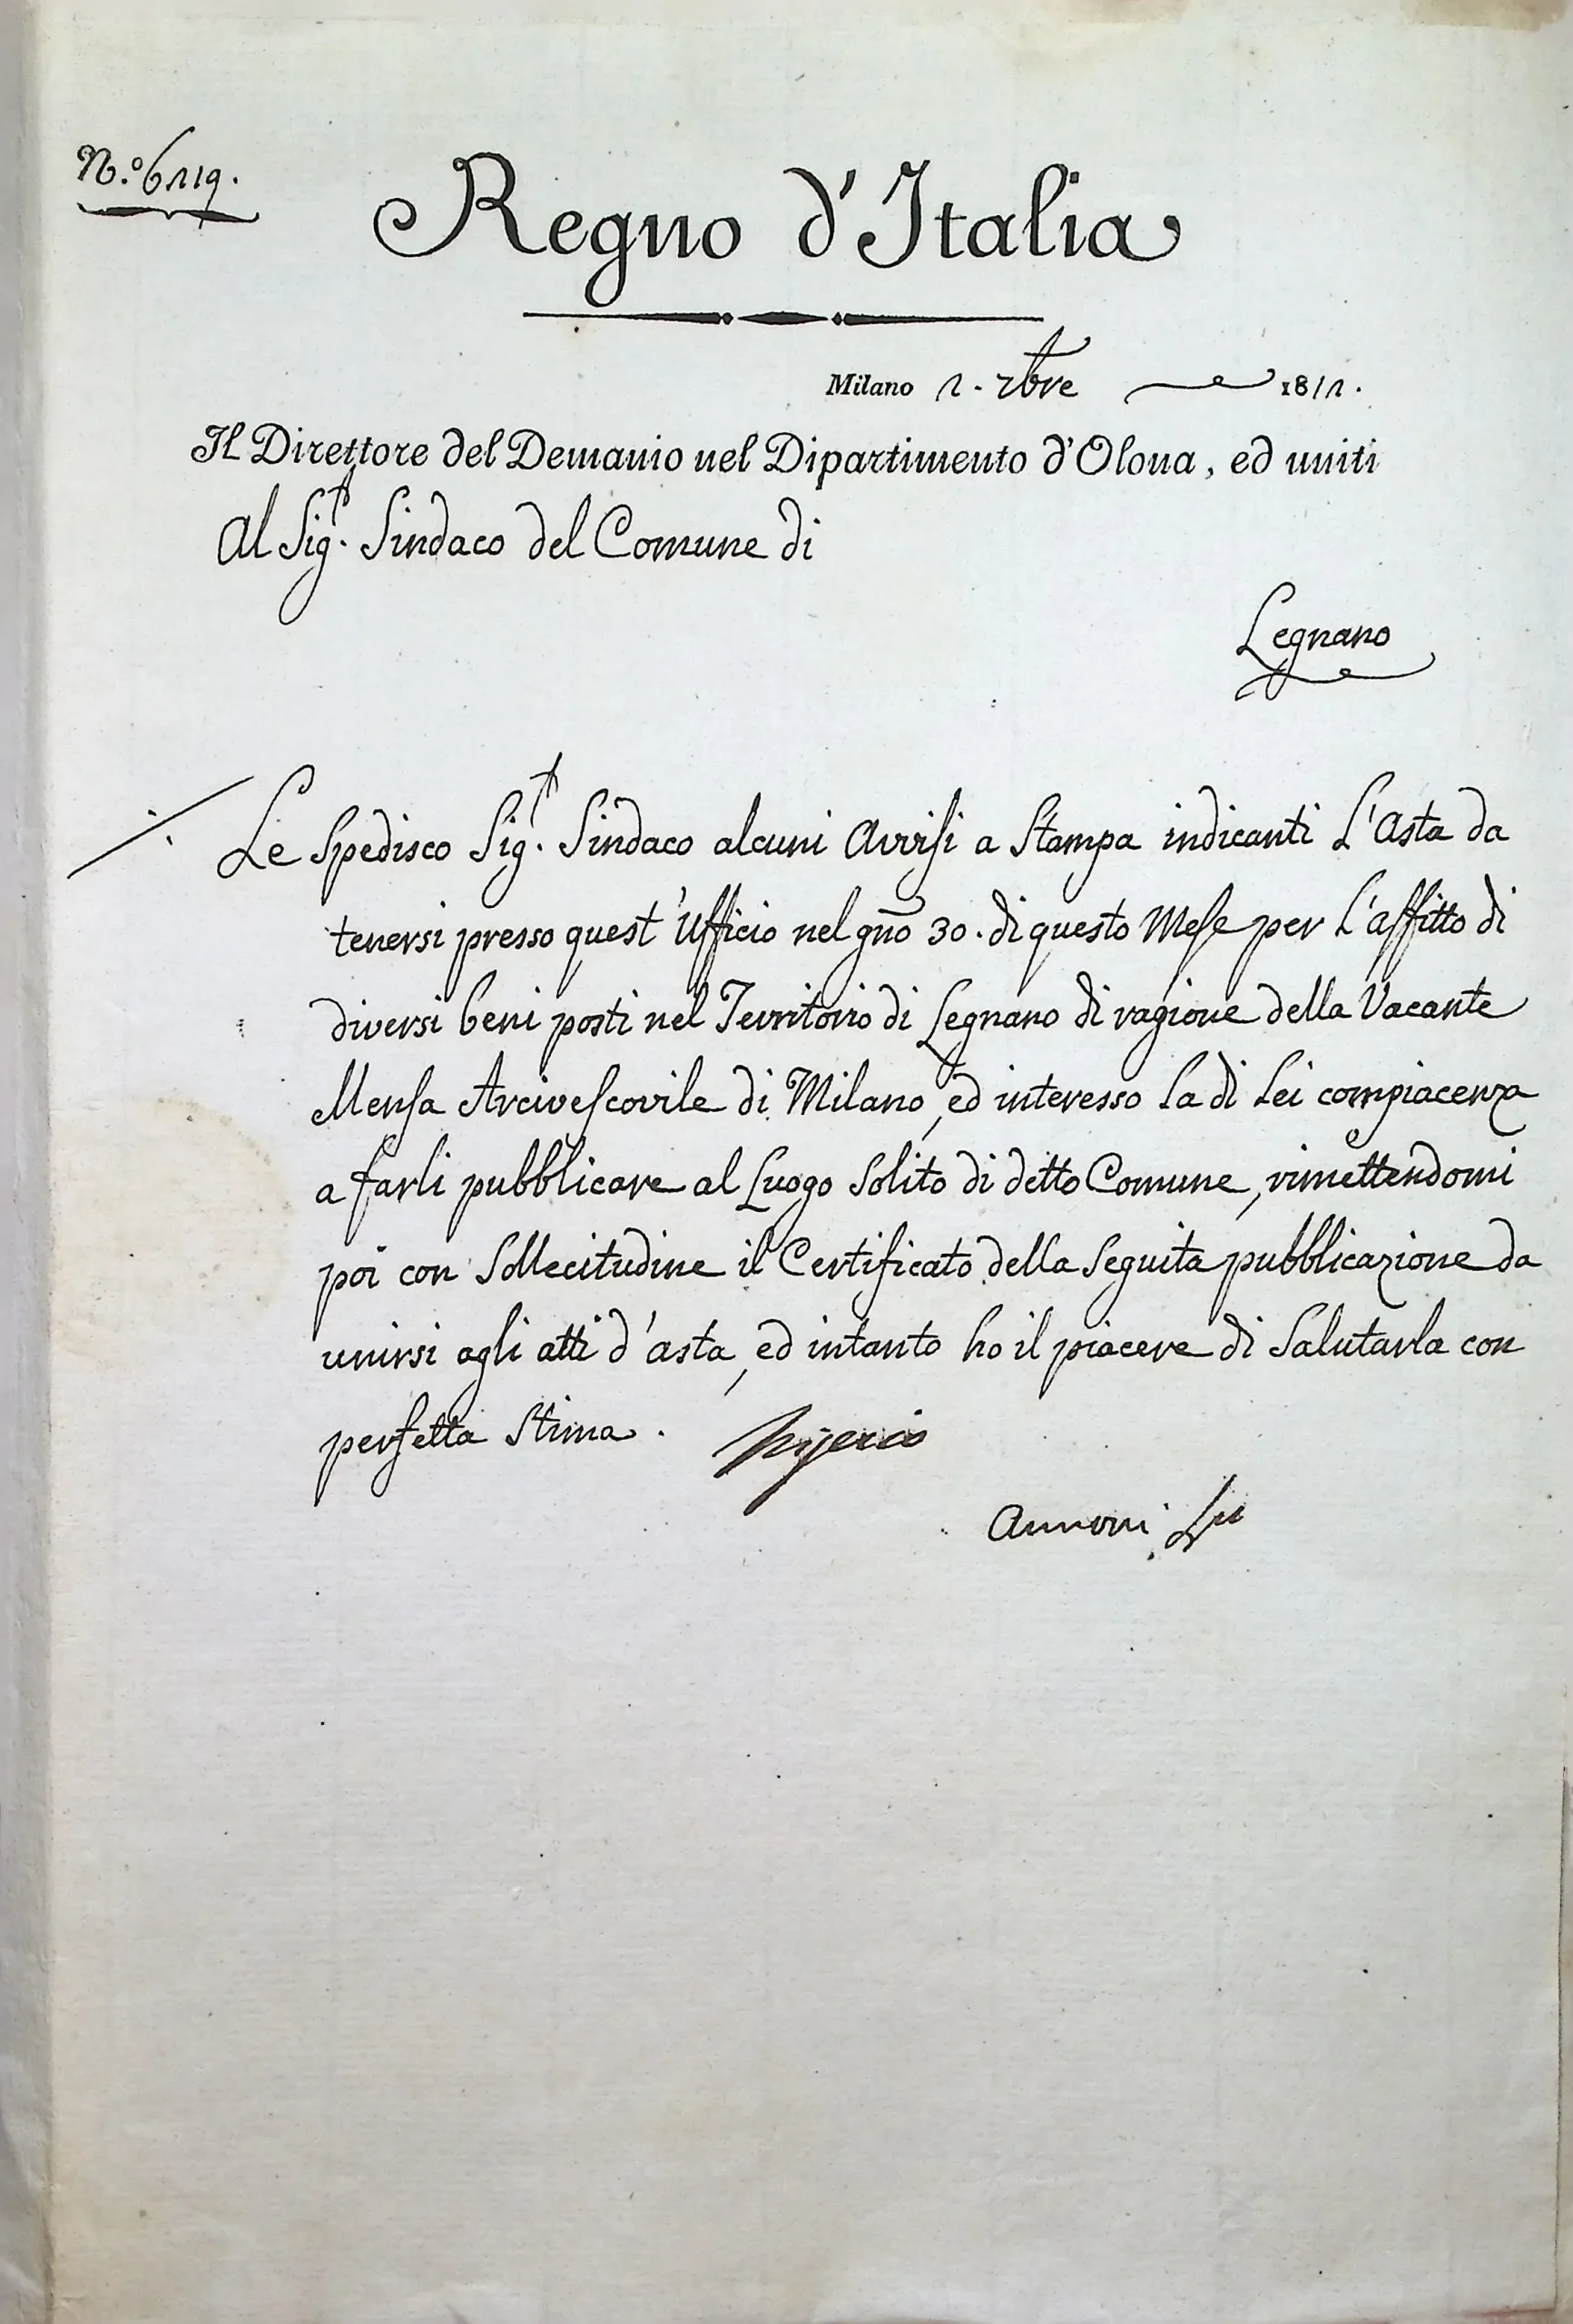 N.º 6119.
Regno d'Italia
Milano 2. 7bre 1811.
Il Direttore del Demanio nel Dipartimento d'Olona, ed uniti
Al Sig.r Sindaco del Comune di
Legnano
Le Spedisco Sig.r Sindaco alcuni Avvisi a Stampa indicanti L'Asta da
tenersi presso quest'Ufficio nel gno 30. di questo Mese per L'affitto di
diversi beni posti nel Territorio di Legnano di ragione della Vacante
Mensa Arcivescovile di Milano, ed interesso La di Lei compiacenza
a farli pubblicare al Luogo Solito di detto Comune, rimettendomi
poi con Sollecitudine il Certificato della Seguita pubblicazione da
unirsi agli atti d'asta, ed intanto ho il piacere di Salutarla con
perfetta Stima.
Annoni